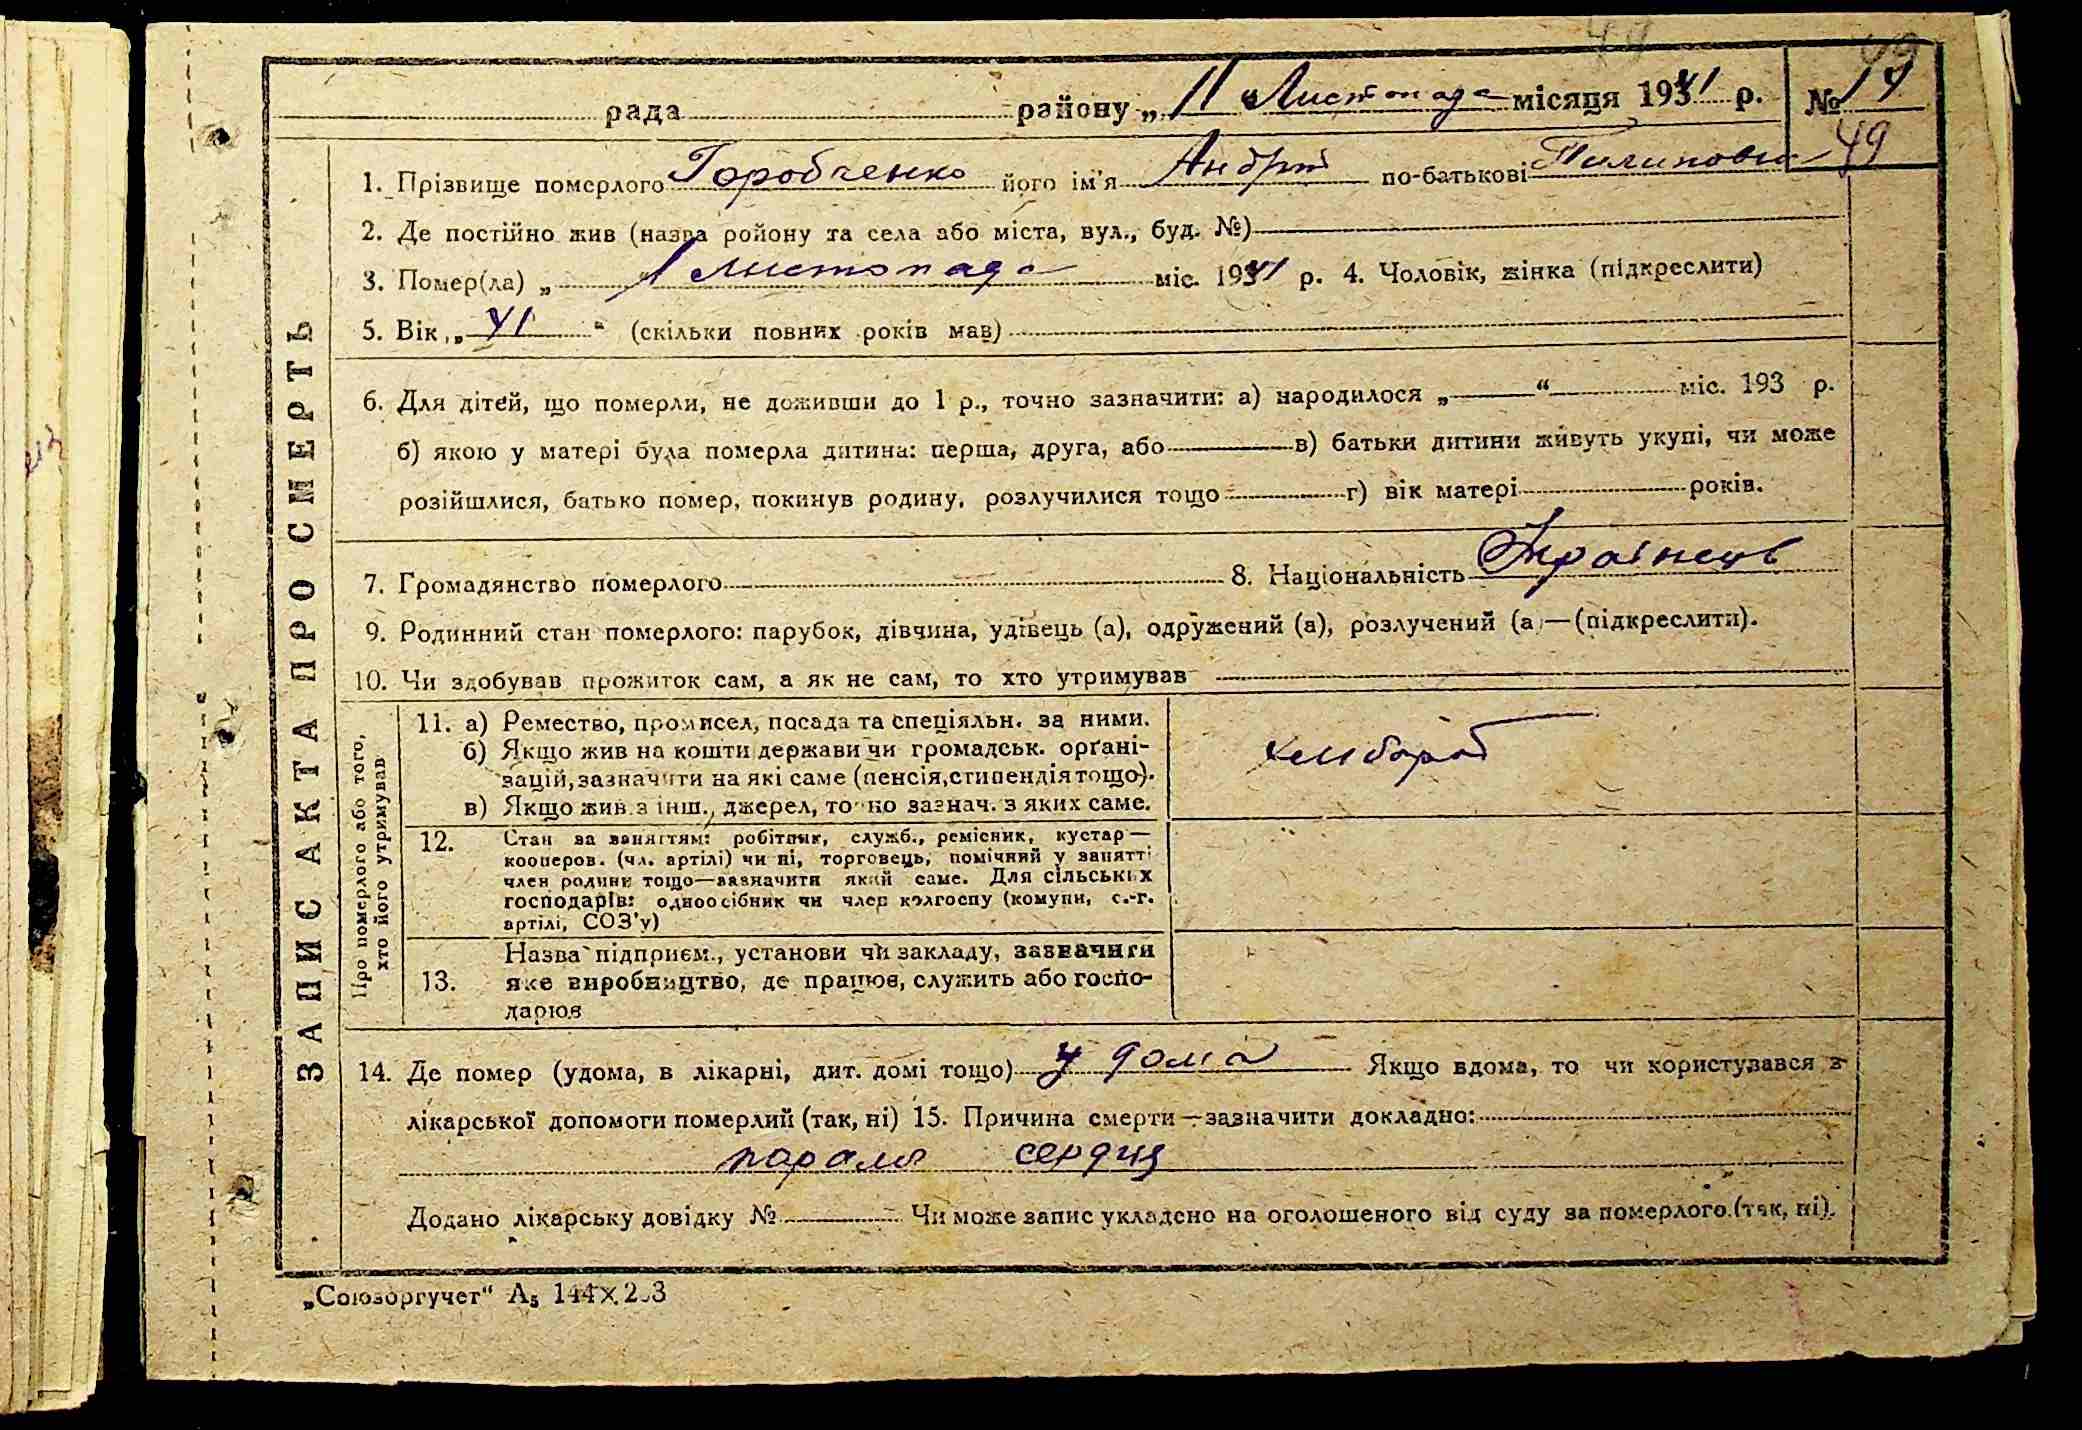 49
рада районну „ 11 “ Листопада місяця 1941 р. № 14
49
1. Прізвище померлого Горобченко його ім'я Андрій по-батькові Пилипович
2. Де постійно жив (назва ройону та села або міста, вул., буд. №)
3. Помер(ла) „ 1 “ листопада міс. 1941 р. 4. Чоловік, жінка (підкреслити)
5. Вік „ 41 “ (скільки повних років мав)
6. Для дітей, що померли, не доживши до 1 р., точно зазначити: а) народилося „ “ міс. 193 р.
б) якою у матері була померла дитина: перша, друга, або в) батьки дитини живуть укупі, чи може
розійшлися, батько помер, покинув родину, розлучилися тощо г) вік матері років.
7. Громадянство померлого 8. Національність Українець
9. Родинний стан померлого: парубок, дівчина, удівець (а), одружений (а), розлучений (а)—(підкреслити).
10. Чи здобував прожиток сам, а як не сам, то хто утримував
ЗАПИС АКТА ПРО СМЕРТЬ
Про померлого або того,
хто його утримував
11. а) Ремество, промисел, посада та спеціяльн. за ними.
б) Якщо жив на кошти держави чи громадськ. орґані-
зацій, зазначити на які саме (пенсія, стипендія тощо).
в) Якщо жив з інш., джерел, точно зазнач. з яких саме.
хлібороб
12. Стан за заняттям: робітник, служб., ремісник, кустар—
кооперов. (чл. артілі) чи ні, торговець, помічний у занятті
член родини тощо—зазначити який саме. Для сільських
господарів: одноосібник чи член колгоспу (комуни, с.-г.
артілі, СОЗ'у)
13. Назва підприєм., установи чи закладу, зазначити
яке виробництво, де працює, служить або госпо-
дарює
14. Де помер (удома, в лікарні, дит. домі тощо) у дома Якщо вдома, то чи користувався з
лікарської допомоги померлий (так, ні) 15. Причина смерти—зазначити докладно:
сердця
Додано лікарську довідку № Чи може запис укладено на оголошеного від суду за померлого (так, ні).
„Союзоргучет“ А₅ 144×203